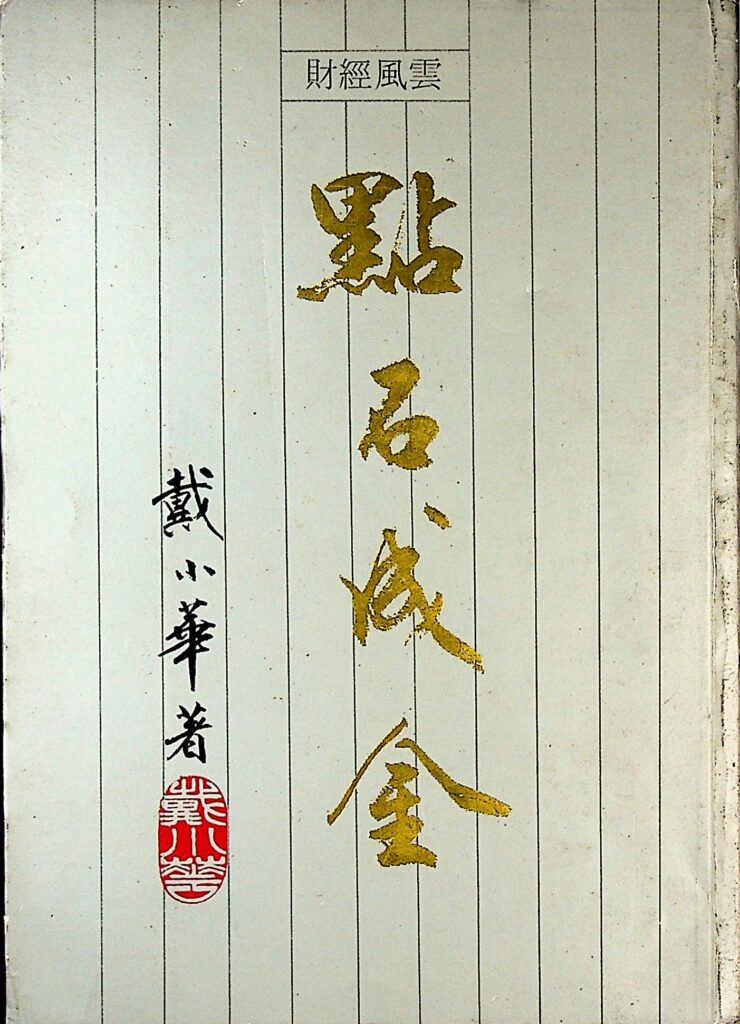 財經風雲
點石成金
戴小華著
戴小華